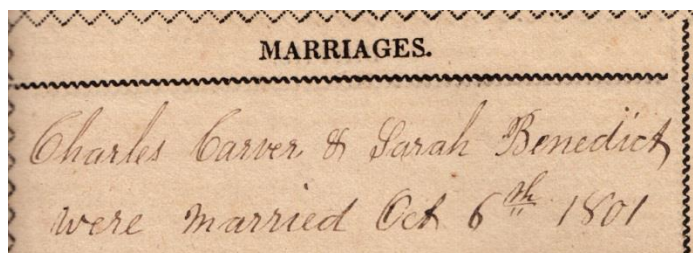 MARRIAGES.
Charles Carver & Sarah Benedict
were married Oct 6th 1801